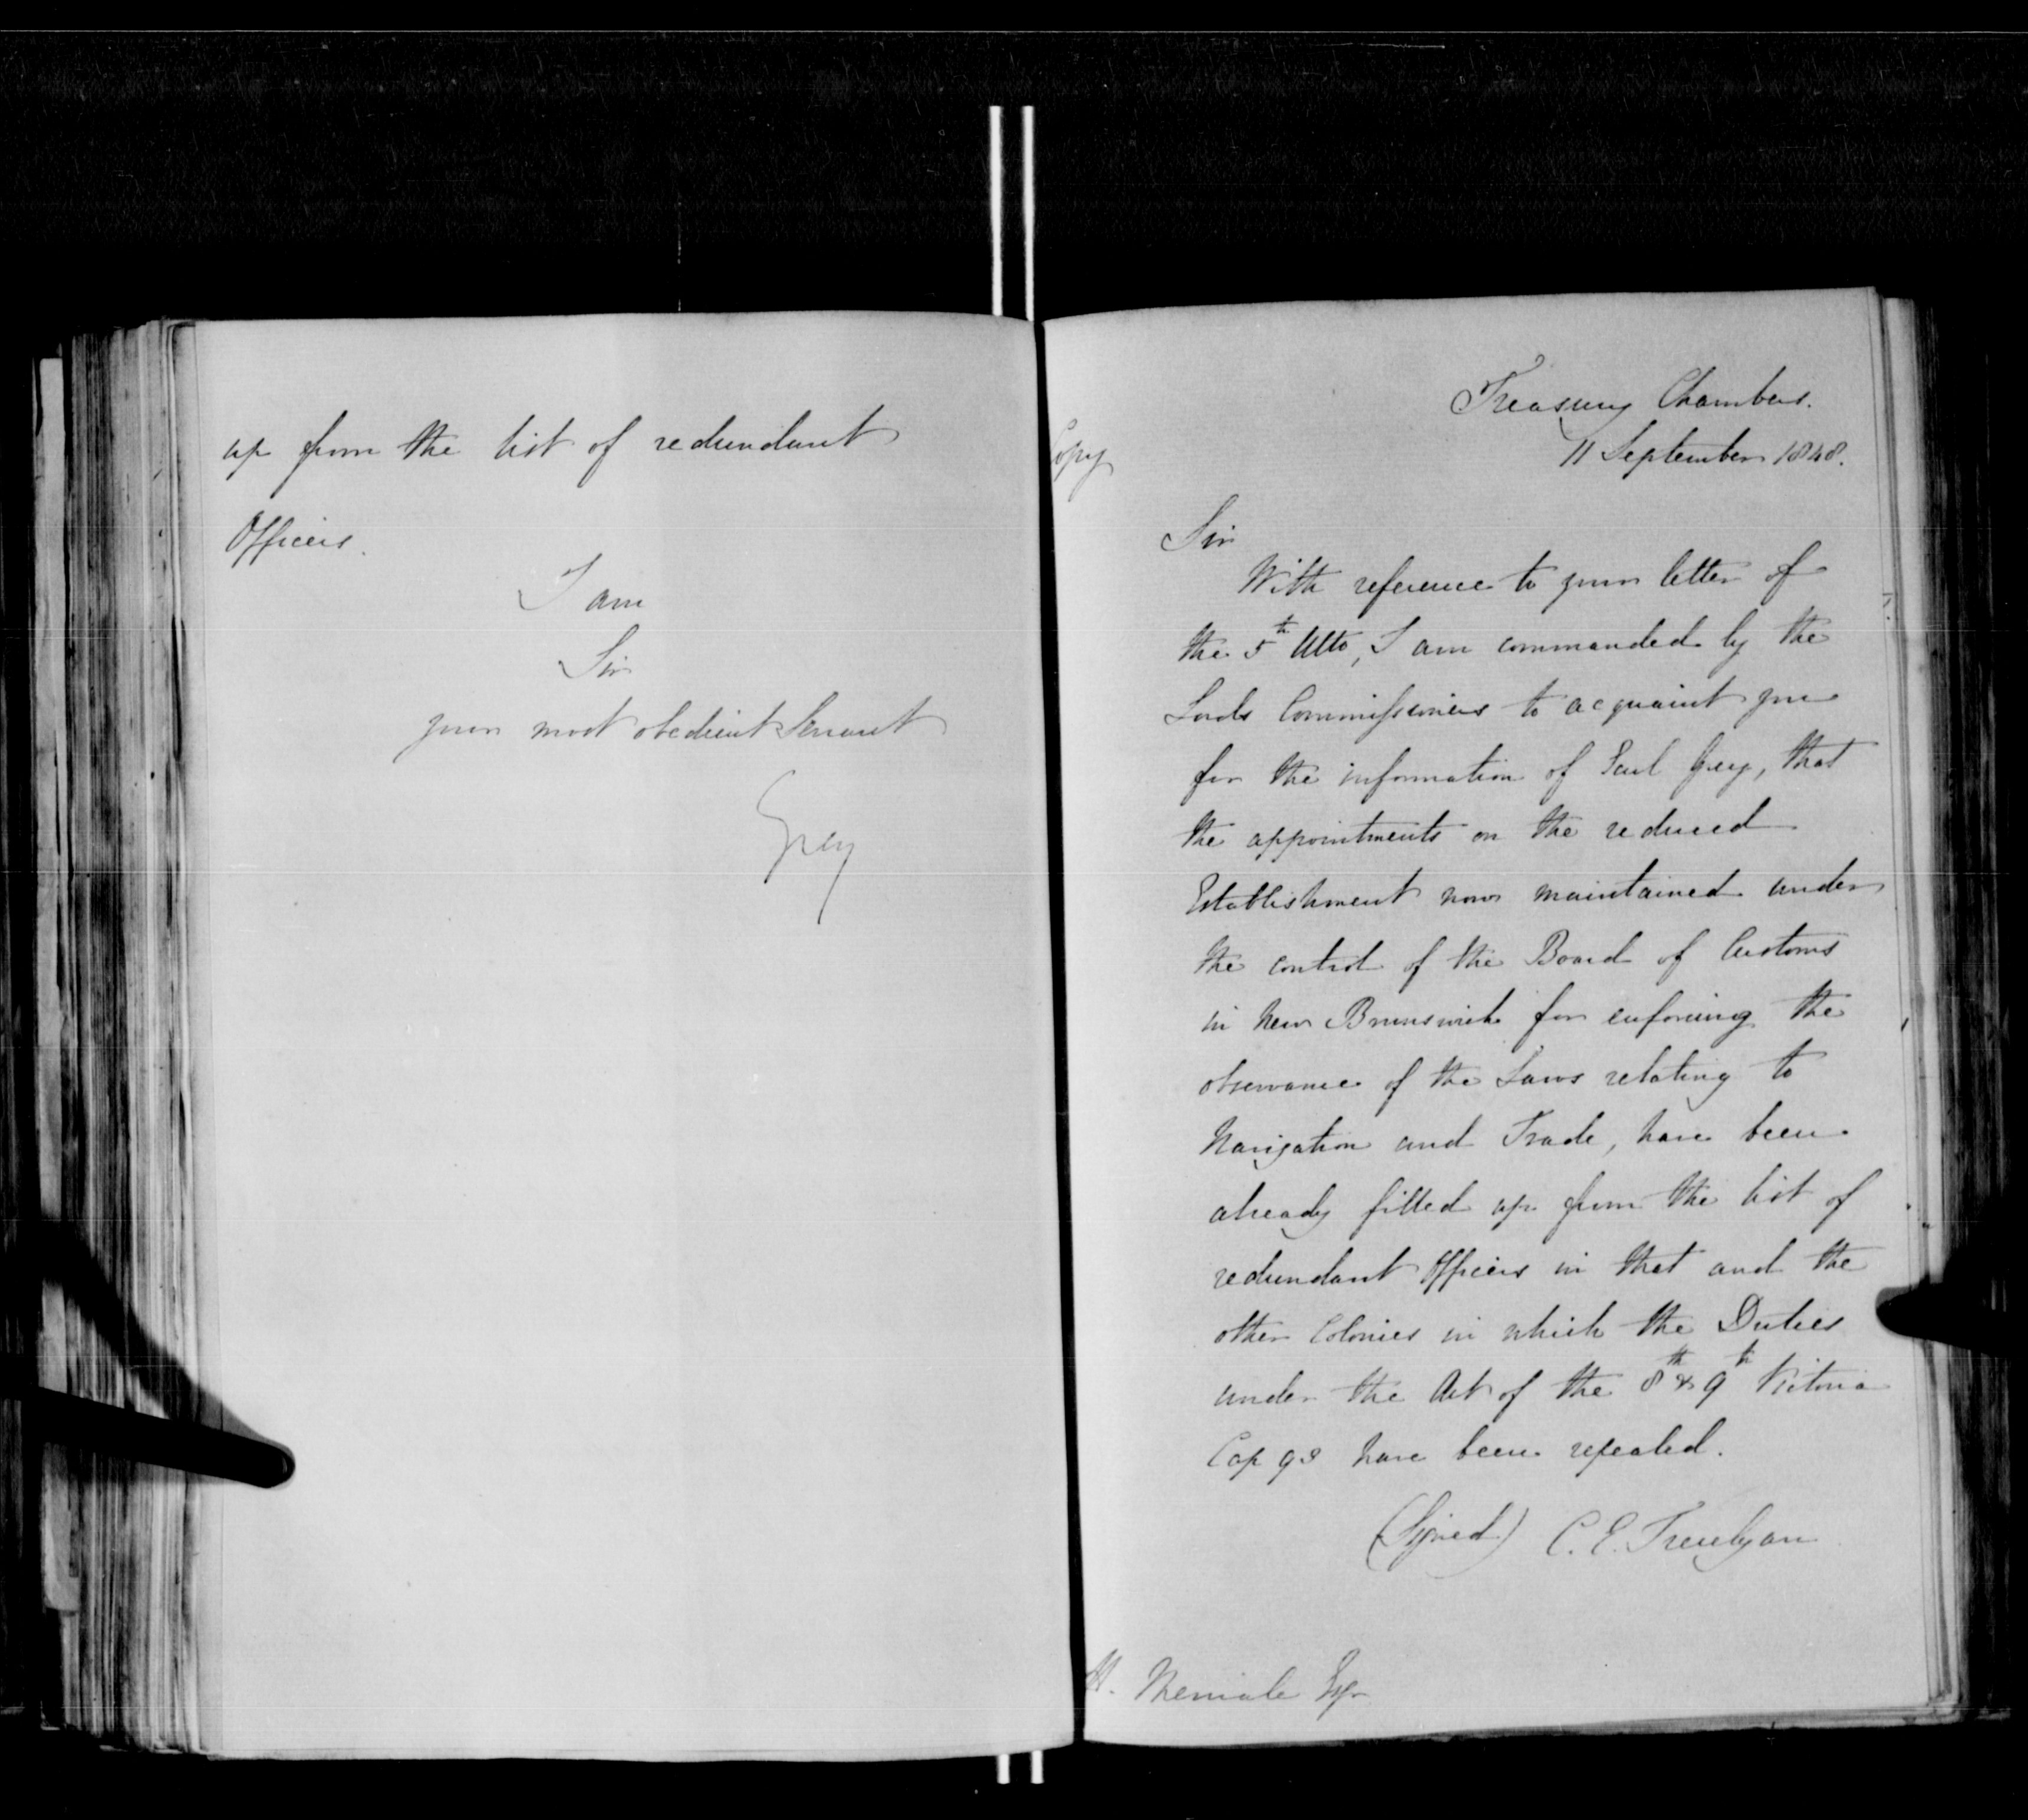 up from the list of redundant
Officers.
I am
Sir
your most obedient Servant
Grey
Copy
Treasury Chambers.
11 September 1848.
Sir
With reference to your letter of
the 5th Ulto, I am commanded by the
Lords Commissioners to acquaint you
for the information of Earl Grey, that
the appointments on the reduced
Establishment now maintained under
the control of the Board of Customs
in New Brunswick for enforcing the
observance of the Laws relating to
Navigation and Trade, have been
already filled up from the list of
redundant Officers in that and the
other Colonies in which the Duties
under the Act of the 8th & 9th Victoria
Cap 93 have been repealed.
(Signed) C. E. Trevelyan
H. Merivale Esqr